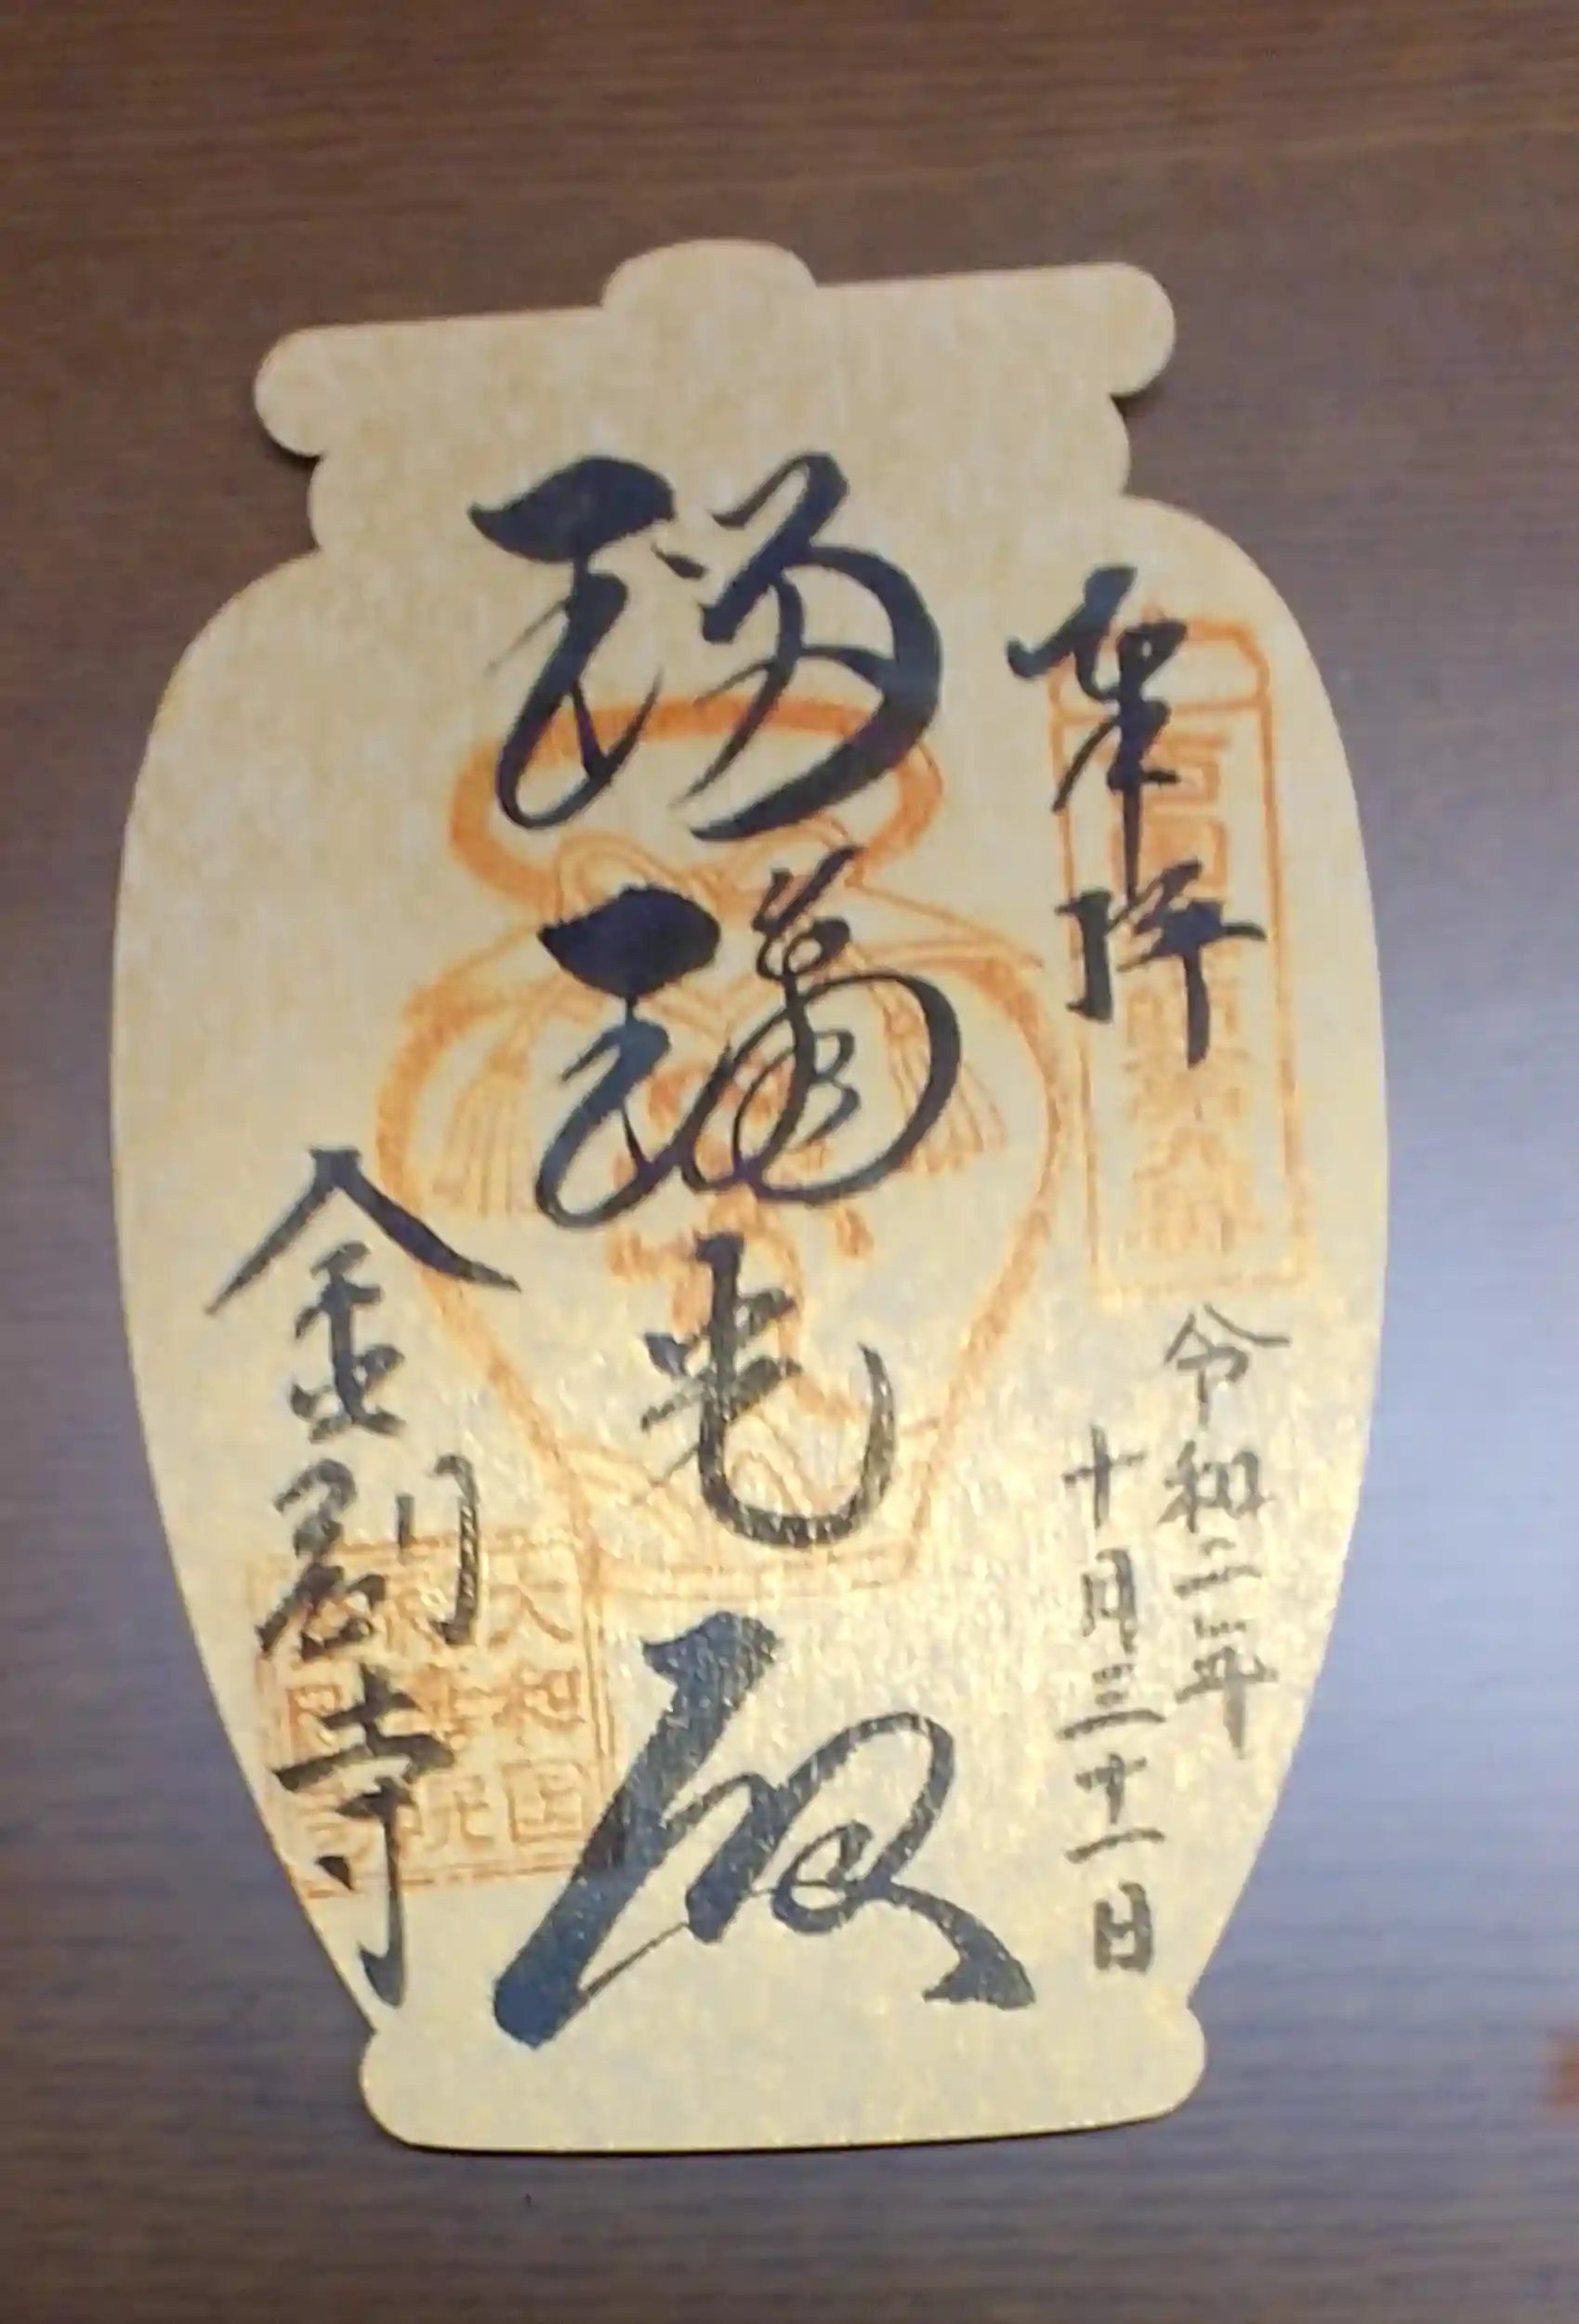 奉拝
令和二年
十月三十一日
瑠璃光殿
金剛寺
大和国